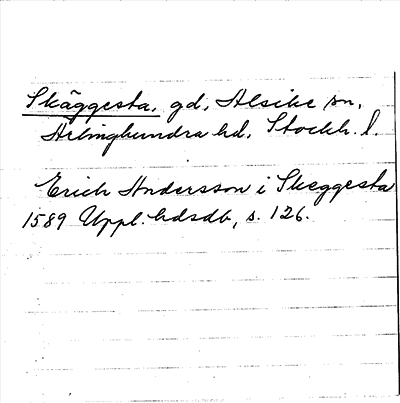 Skäggesta, gd, Alsike sn,
Ärlinghundra hd. Stockh. l.
Erich Andersson i Skeggesta
1589 Uppl. hdsdb, s. 126.